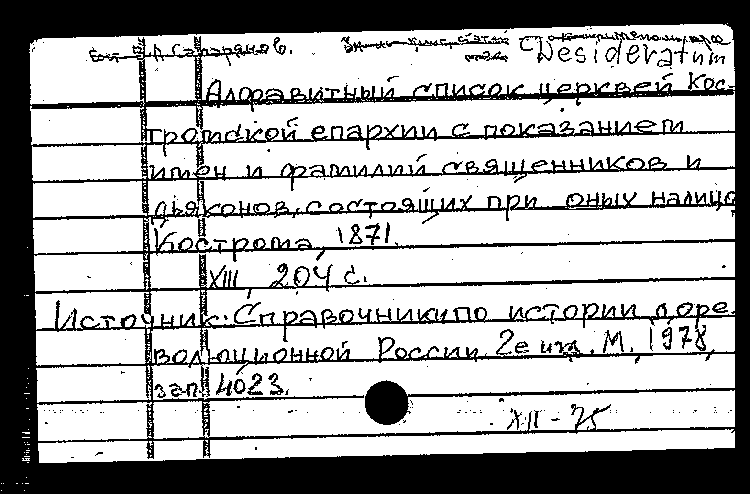 Desideratum
Алфавитный список церквей Кос-
тромской епархии с показанием
имен и фамилий священников и
дьяконов, состоящих при оных налицо
Кострома, 1871.
XIII, 204 с.
Источник: Справочники по истории доре
волюционной России. 2е изд. М., 1978,
зап. 4023.
XII - 75